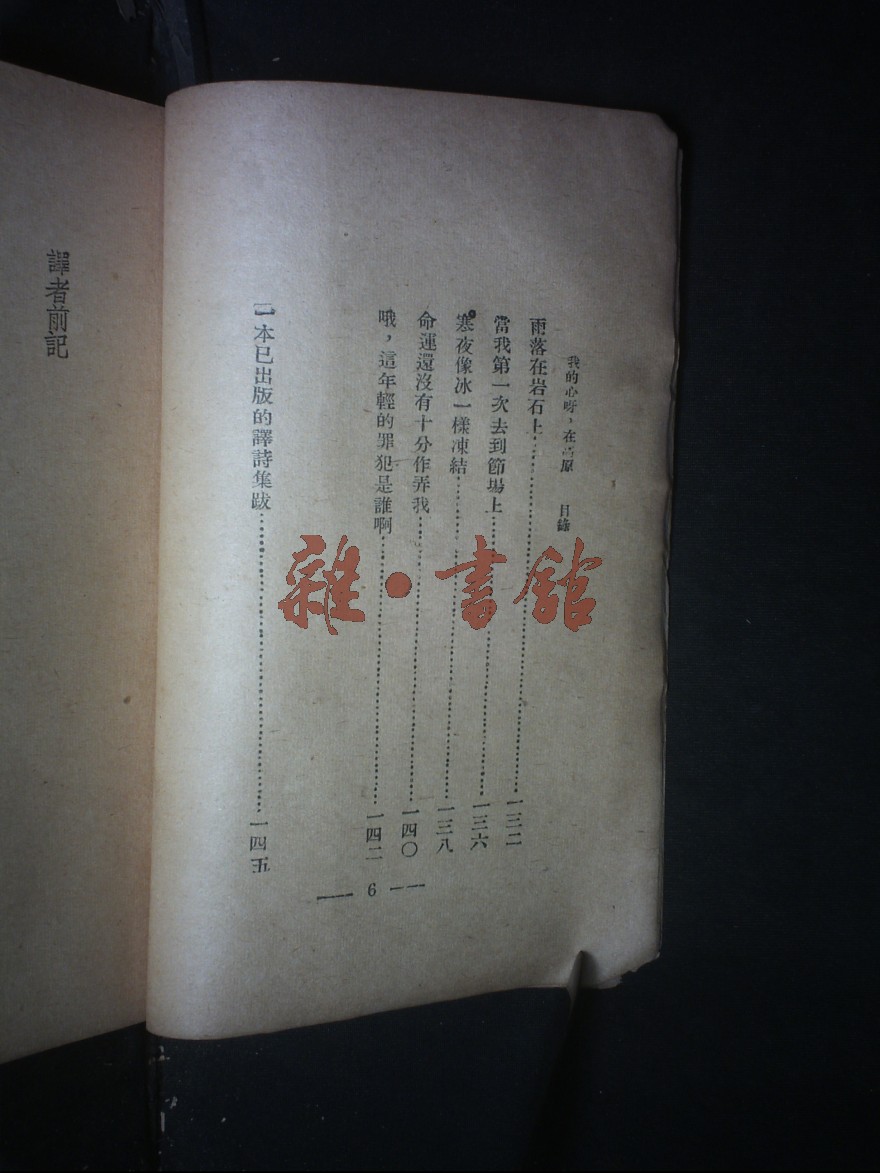 我的心呀，在高原　目錄
雨落在岩石上……一三二
當我第一次去到節場上……一三六
寒夜像冰一樣凍結……一三八
命運還沒有十分作弄我……一四〇
哦，這年輕的罪犯是誰啊……一四二
一本已出版的譯詩集跋……一四五
— 6 —
譯者前記
雜·書館